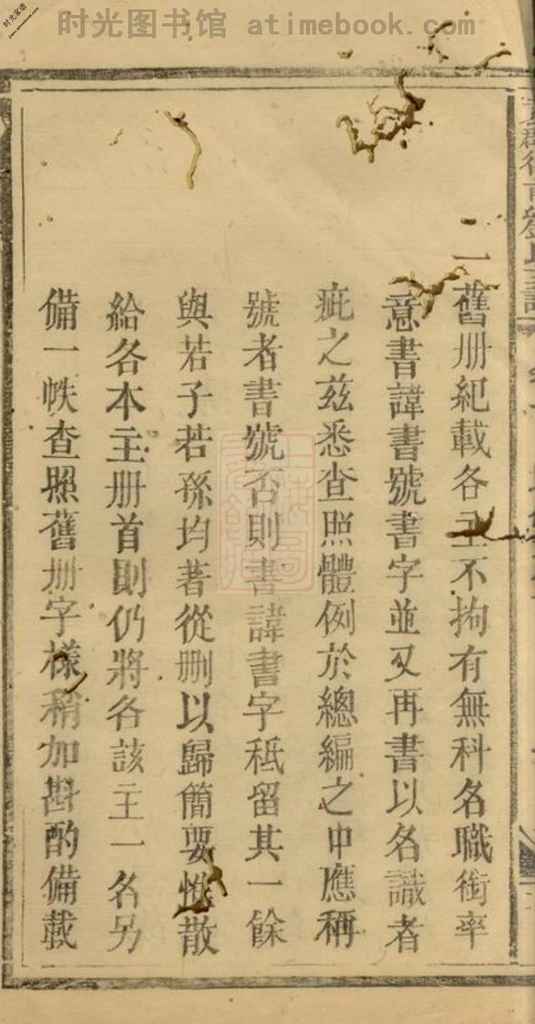 时光图书馆 atimebook.com
一舊册紀載各主不拘有無科名職銜率
意書諱書號書字並又再書以名識者
疵之茲悉查照體例於總編之中應稱
號者書號否則書諱書字秪留其一餘
與若子若孫均著從刪以歸簡要惟散
給各本主册首則仍將各該主一名另
備一帙查照舊册字樣稍加斟酌備載